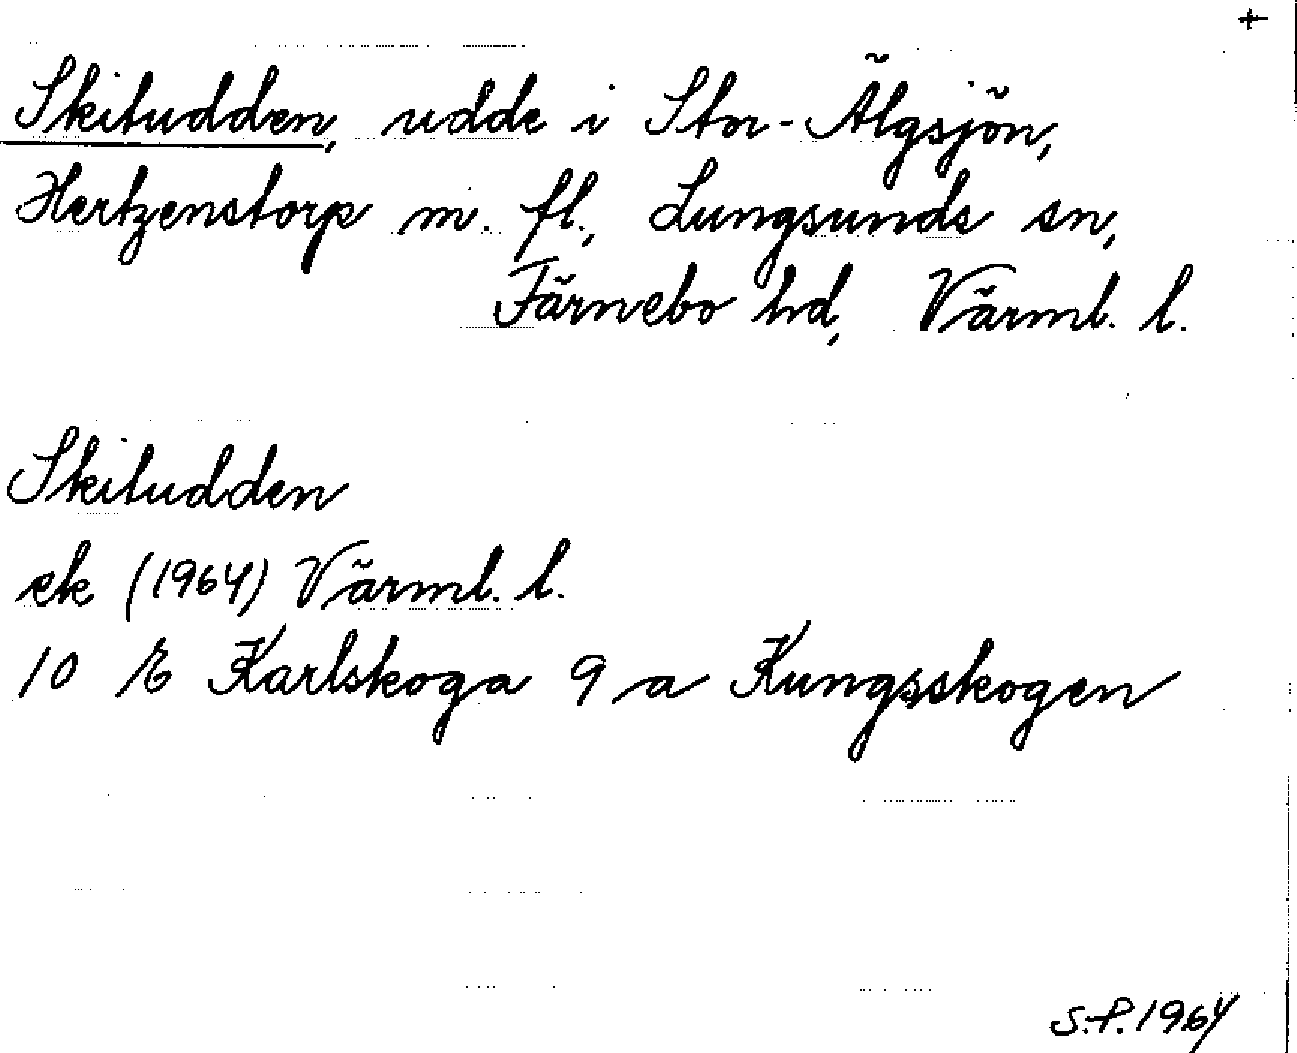 +
Skitudden, udde i Stor-Älgsjön,
Hertzenstorp m. fl., Lungsunds sn,
Färnebo hd, Värml. l.
Skitudden
ek (1964) Värml. l.
10 E Karlskoga 9 a Kungsskogen
S.P. 1964